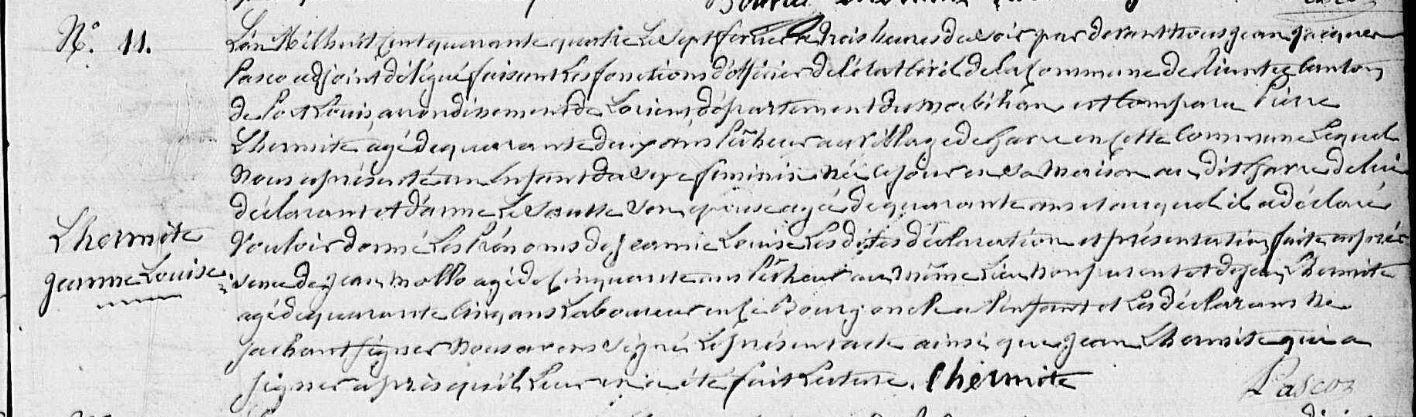 N.º 11.
L'an Mil huit Cent quarante quatre Le Sept fevrier a trois heures du soir par devant Nous Jean Jacques
Pasco adjoint délégué faisant Les fonctions d'officier de l'état Civil de La Commune de Riantec Canton
de Port Louis arrondissement de Lorient département du Morbihan est Comparu Pierre
Lhermite agé de quarante deux ans Pêcheur au village de Gavre en Cette Commune Lequel
Nous a présenté un Enfant du sexe féminin Née Ce Jour en sa Maison au dit Gavre de lui
déclarant et d'anne son épouse agée de quarante ans et auquel il a déclaré
Vouloir donné Les Prénoms de Jeanne Louise Les dites déclaration et présentation faite en pré
Lhermite
Jeanne Louise
sence de Jean Mollo agé de Cinquante ans Pêcheur au même Lieu non parent et de Jean Lhermite
agé de quarante Cinq ans Laboureur en Ce Bourg oncle a l'enfant et Les déclarans Ne
Sachant Signer Nous avons Signé Le présent acte ainsi que Jean Lhermite qui a
Signer après qu'il Leur en a été fait Lecture. Lhermite
Pasco